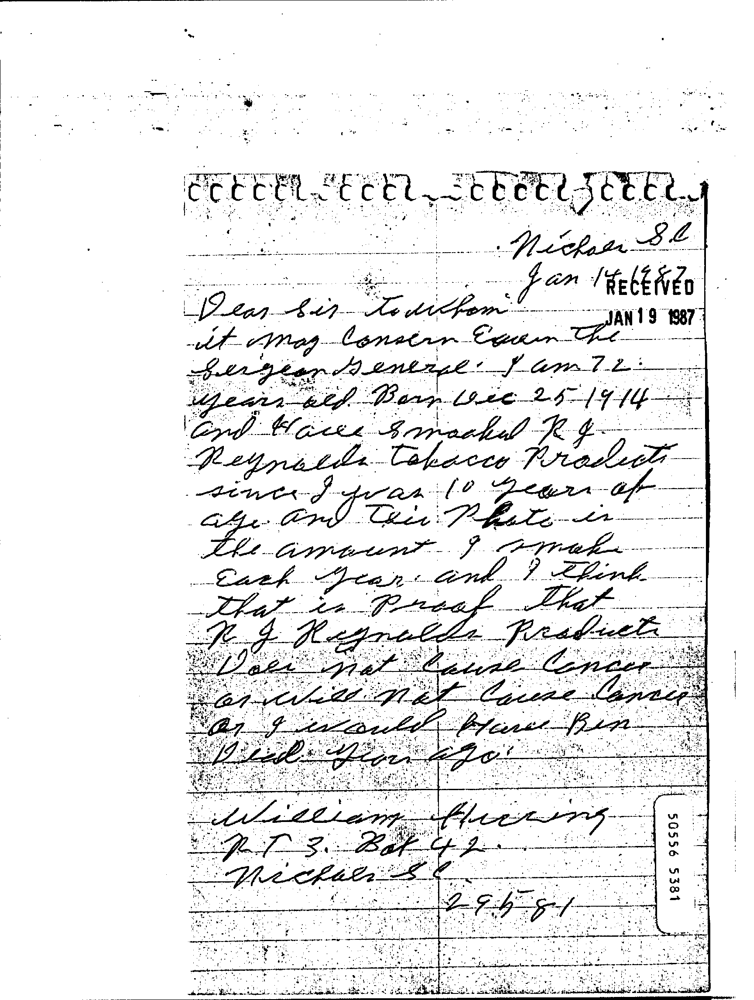 Nichols S.C
Jan 14 1987
RECEIVED
JAN 19 1987
Dear Sir To whom
it may Consern Eaven The
Sergeon General. I am 72
years old. Born Dec 25 1914
and Have Smooked R J
Reynolds Tobacco Products
since I was 10 years of
age and This Photo is
the amount I smoke
Each year. and I think
that is Proof that
R J Reynolds Products
Does not Cause Cancer
or will not Cause Cancer
or I would Have Ben
Dead years ago.
William Herring
RT 3. Box 42.
Nichols S C
29581
50556 5381